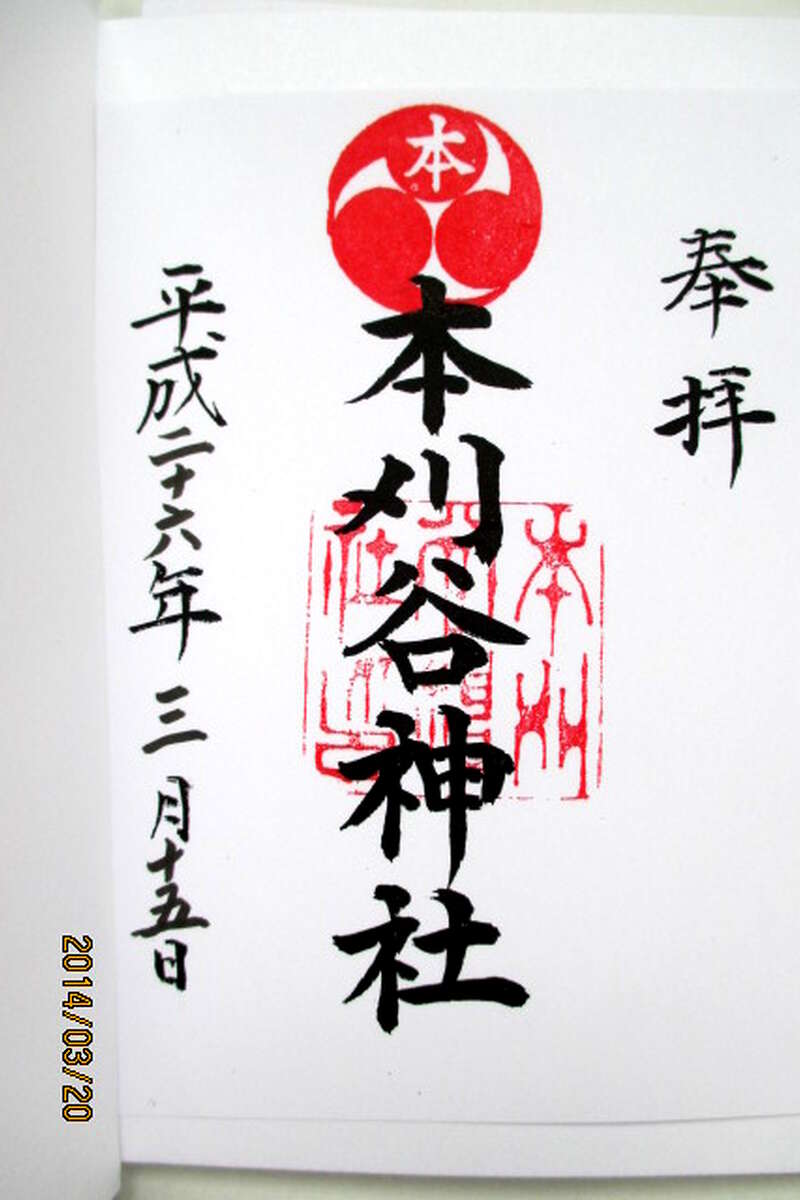 奉拝
本
本刈谷神社
平成二十六年三月十五日
2014/03/20